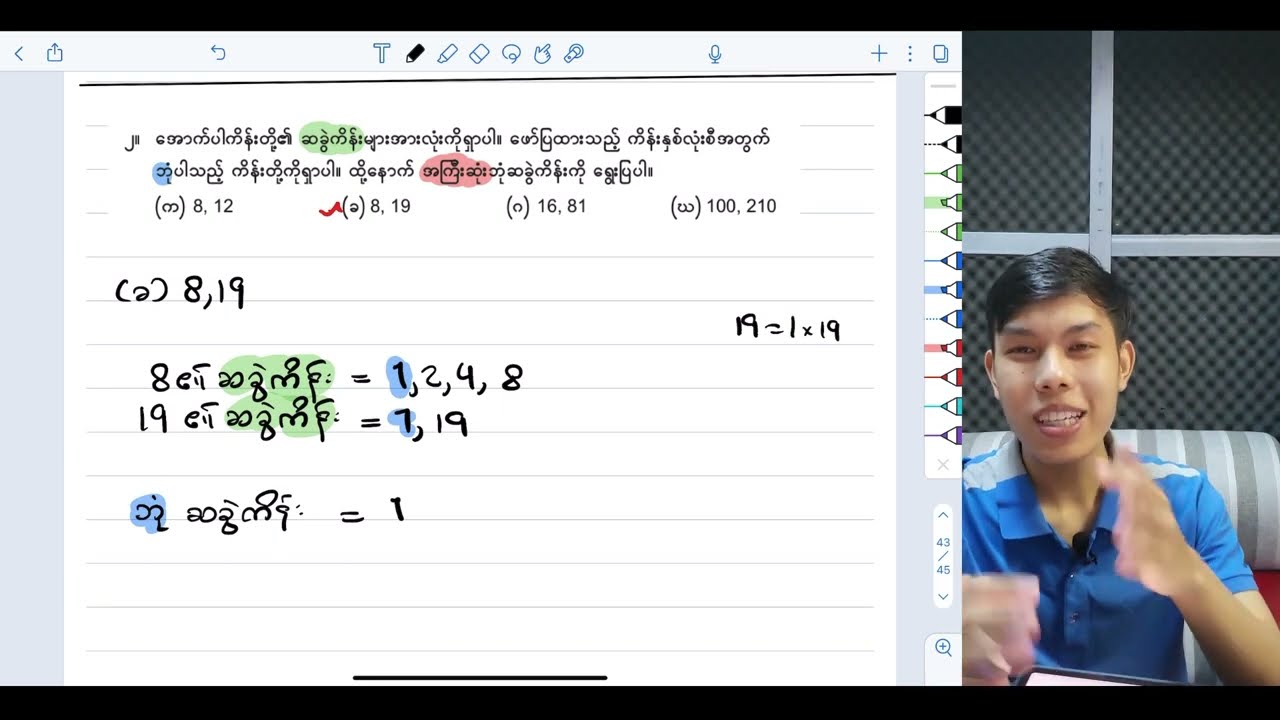 ၂။ အောက်ပါကိန်းတို့၏ ဆခွဲကိန်းများအားလုံးကိုရှာပါ။ ဖော်ပြထားသည့် ကိန်းနှစ်လုံးစီအတွက်
ဘုံပါသည့် ကိန်းတို့ကိုရှာပါ။ ထို့နောက် အကြီးဆုံးဘုံဆခွဲကိန်းကို ရွေးပြပါ။
(က) 8, 12 (ခ) 8, 19 (ဂ) 16, 81 (ဃ) 100, 210
(ခ) 8,19
19 = 1 × 19
8 ၏ ဆခွဲကိန်း = 1, 2, 4, 8
19 ၏ ဆခွဲကိန်း = 1, 19
ဘုံ ဆခွဲကိန်း = 1
43
/
45